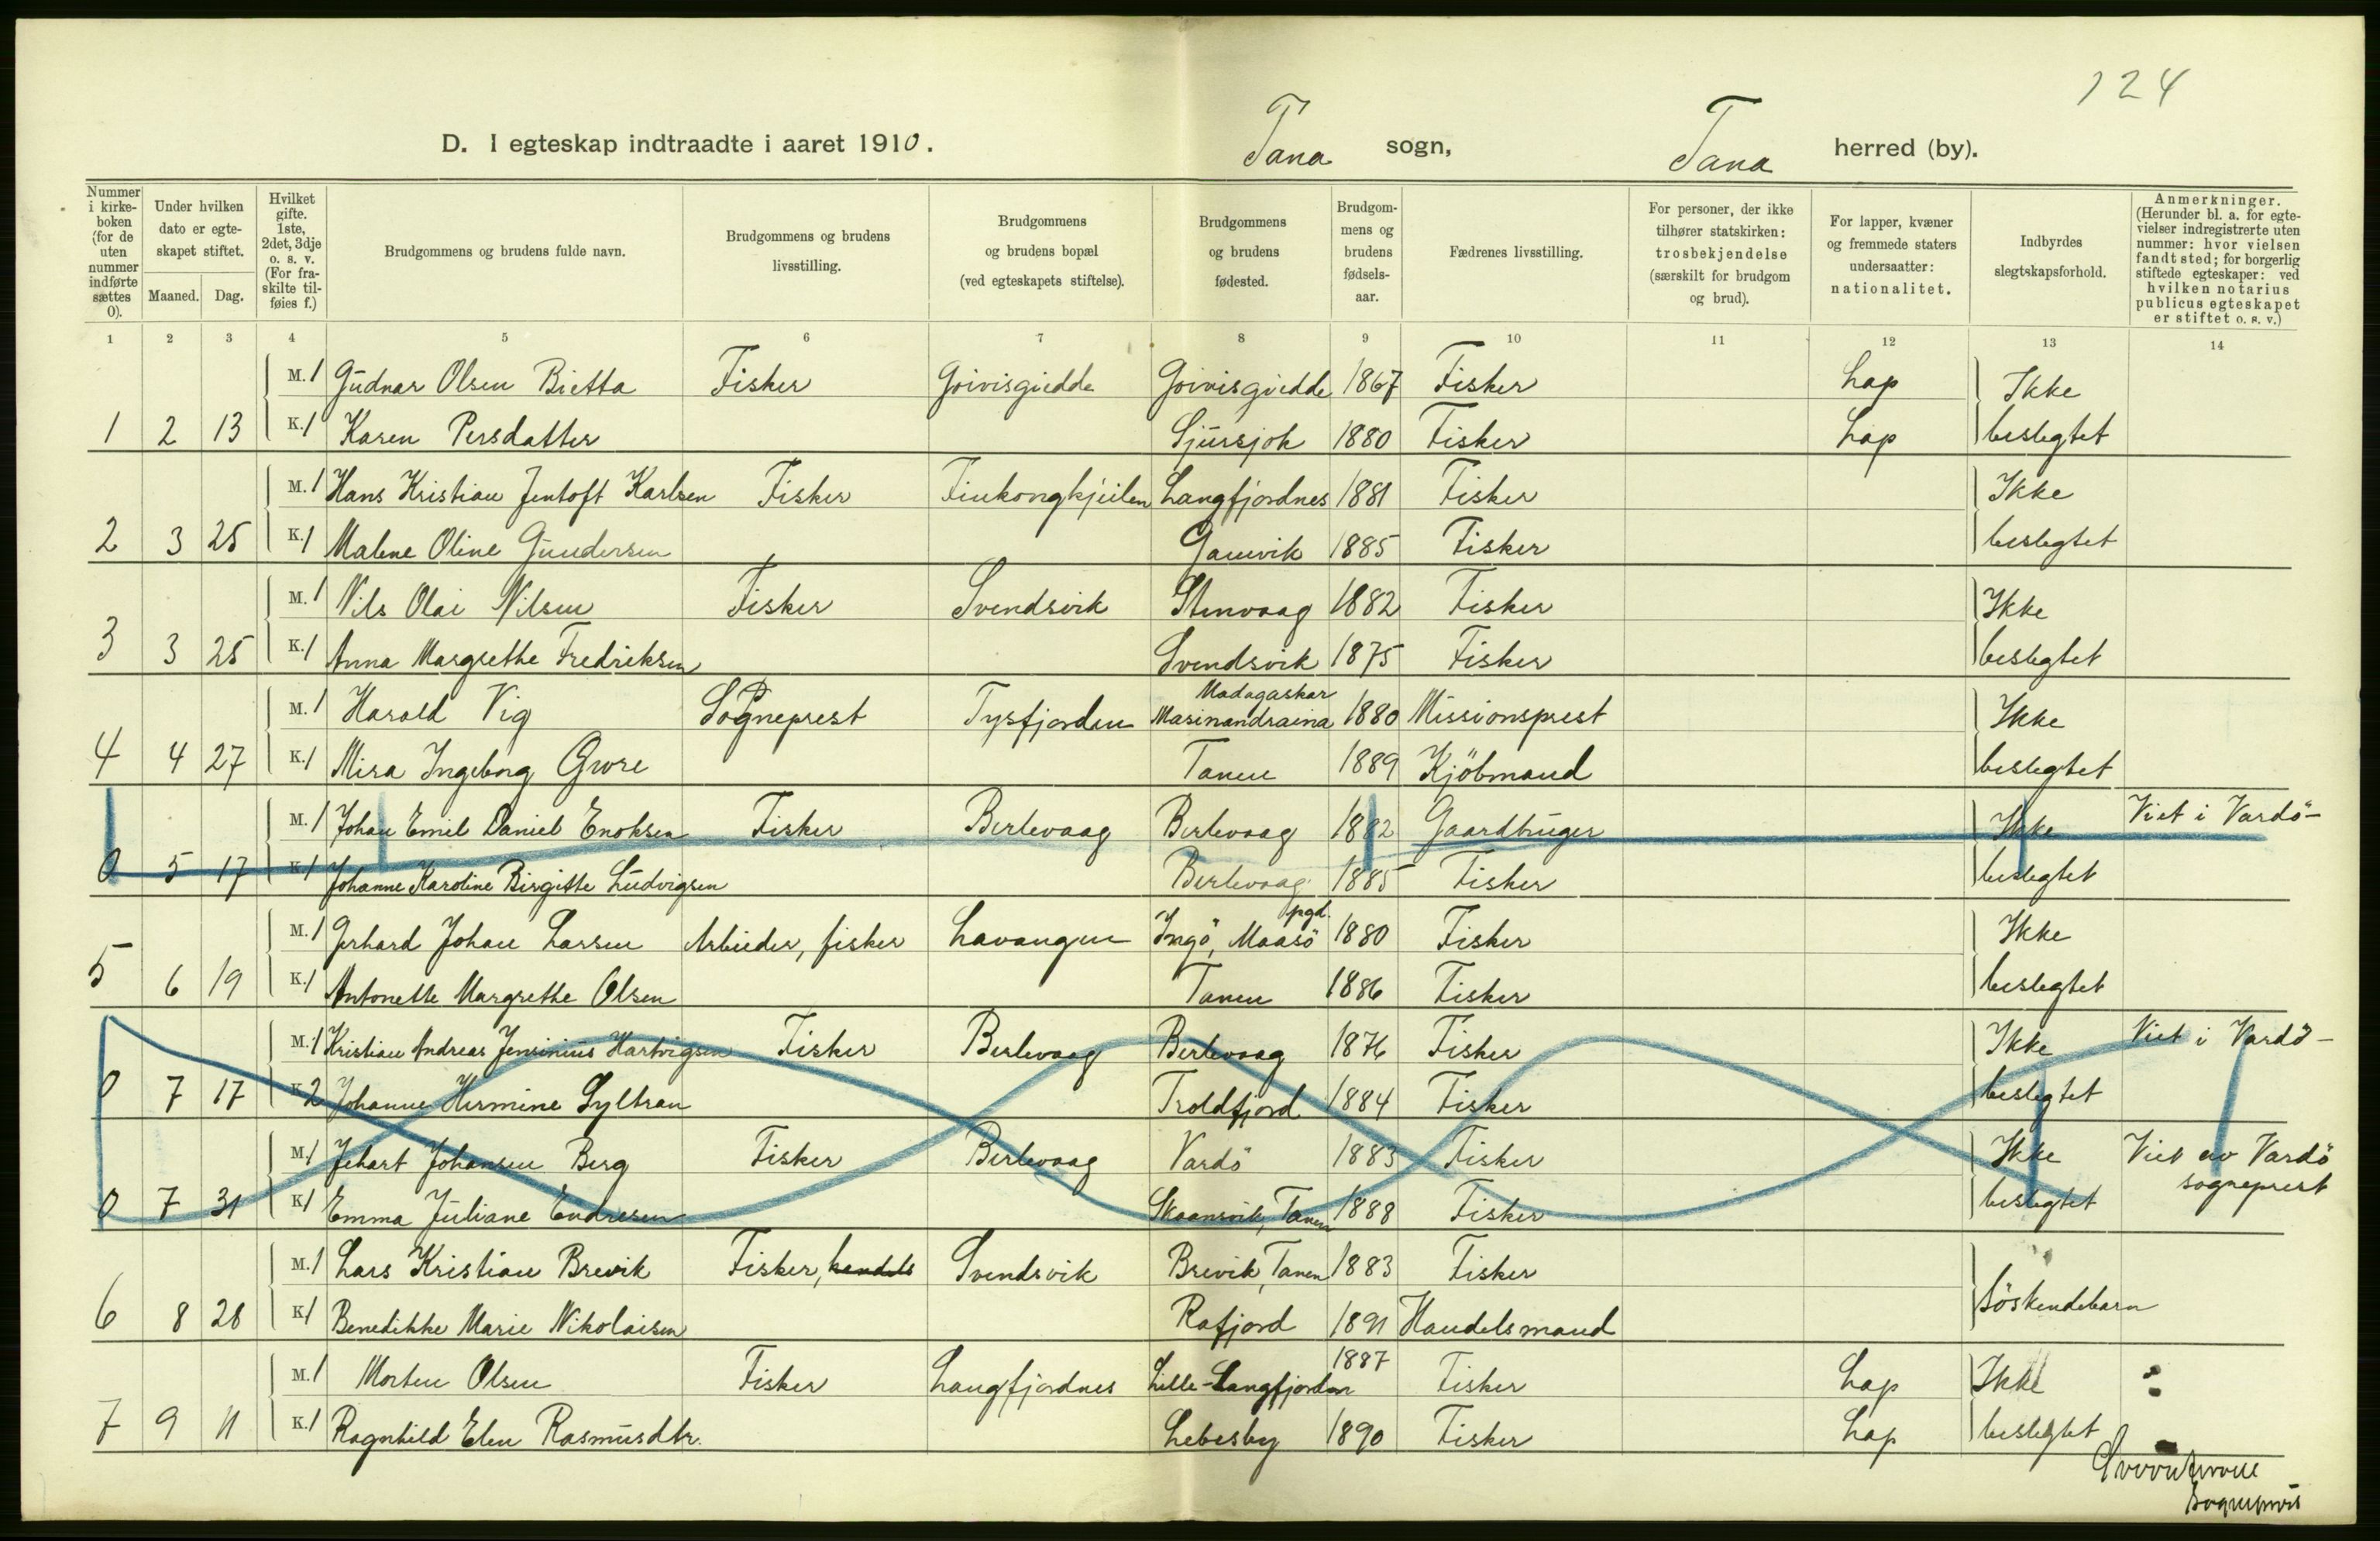 124
D. I egteskap indtraadte i aaret 1910. Tana sogn, Tana herred (by).
Nummer i kirkeboken (for de uten nummer indførte sættes 0). Under hvilken dato er egteskapet stiftet. Maaned. Dag. Hvilket gifte. 1ste, 2det, 3dje o. s. v. (For fraskilte tilføies f.) Brudgommens og brudens fulde navn. Brudgommens og brudens livsstilling. Brudgommens og brudens bopæl (ved egteskapets stiftelse). Brudgommens og brudens fødested. Brudgommens og brudens fødselsaar. Fædrenes livsstilling. For personer, der ikke tilhører statskirken: trosbekjendelse (særskilt for brudgom og brud). For lapper, kvæner og fremmede staters undersaatter: nationalitet. Indbyrdes slegtskapsforhold. Anmerkninger. (Herunder bl. a. for egtevielser indregistrerte uten nummer: hvor vielsen fandt sted; for borgerlig stiftede egteskaper: ved hvilken notarius publicus egteskapet er stiftet o. s. v.)
1 2 3 4 5 6 7 8 9 10 11 12 13 14
M. 1 Gudnar Olsen Bietta Fisker Goivisguedde Goivisguedde 1867 Fisker Lap Ikke
1 2 13 K. 1 Karen Persdatter Sjursjok 1880 Fisker Lap beslegtet
M. 1 Hans Kristian Jentoft Karlsen Fisker Finkongkjeilen Langfjordnes 1881 Fisker Ikke
2 3 25 K. 1 Malene Oline Gundersen Gamvik 1885 Fisker beslegtet
M. 1 Nils Olai Nilsen Fisker Svendsvik Stenvaag 1882 Fisker Ikke
3 3 25 K. 1 Anna Margrethe Fredriksen Svendsvik 1875 Fisker beslegtet
M. 1 Harald Vig Sogneprest Tysfjorden Madagaskar Masinandraina 1880 Missionsprest Ikke
4 4 27 K. 1 Mira Ingeborg Gvore Tanen 1889 Kjöbmand beslegtet
M. 1 Johan Emil Daniel Enoksen Fisker Berlevaag Berlevaag 1882 Gaardbruger Ikke Viet i Vardö-
0 5 17 K. 1 Johanne Karoline Birgitte Ludvigsen Berlevaag 1885 Fisker beslegtet
M. 1 Gerhard Johan Larsen Arbeider, fisker Lavangen Ingö, Maasö pgd. 1880 Fisker Ikke
5 6 19 K. 1 Antonette Margrethe Olsen Tanen 1886 Fisker beslegtet
M. 1 Kristian Andreas Jensinius Hartvigsen Fisker Berlevaag Berlevaag 1876 Fisker Ikke Viet i Vardö-
0 7 17 K 2 Johanne Hermine Syltran Troldfjord 1884 Fisker beslegtet
M. 1 Jehart Johansen Berg Fisker Berlevaag Vardö 1883 Fisker Ikke Viet av Vardö
0 7 31 K. 1 Emma Juliane Endresen Skaansvik, Tanen 1888 Fisker beslegtet sogneprest
M. 1 Lars Kristian Brevik Fisker, handels Svendsvik Brevik, Tanen 1883 Fisker
6 8 28 K. 1 Benedikke Marie Nikolaisen Rafjord 1891 Handelsmand söskendebarn
M. 1 Morten Olsen Fisker Langfjordnes Lille-Langfjorden 1887 Fisker Lap Ikke
7 9 11 K. 1 Ragnhild Elen Rasmusdtr. Lebesby 1890 Fisker Lap beslegtet